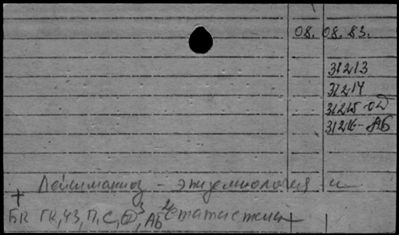 08. 08. 83.
31213
31214
31215-од
31216-АБ
Лейшманиоз - эпидемиология и
БК ГК, ЧЗ, П, С, АБ статистика